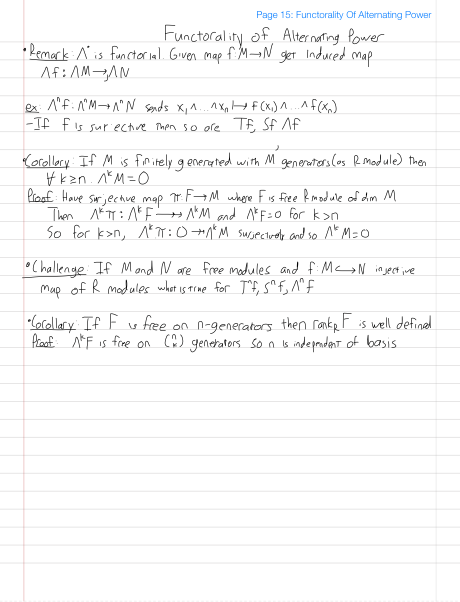 Page 15: Functorality Of Alternating Power
Functorality of Alternating Power
• Remark: Λ˙ is functorial. Given map f: M → N get induced map
Λf: ΛM → ΛN
ex: Λⁿf: ΛⁿM → ΛⁿN sends x₁ ∧ ... ∧ xₙ ↦ f(x₁) ∧ ... ∧ f(xₙ)
- If f is surjective then so are Tf, Sf Λf
• Corollary: If M is finitely generated with M generators (as R module) then
∀ k ≥ n. ΛᵏM = 0
Proof: Have surjective map π: F → M where F is free R module of dim M
Then Λᵏπ: ΛᵏF ↠ ΛᵏM and ΛᵏF = 0 for k > n
So for k > n, Λᵏπ: 0 ↠ ΛᵏM surjectively and so ΛᵏM = 0
• Challenge: If M and N are free modules and f: M ↪ N injective
map of R modules what is true for Tⁿf, Sⁿf, Λⁿf
• Corollary: If F is free on n-generators then rank_R F is well defined
Proof: ΛᵏF is free on (ⁿₖ) generators so n is independent of basis